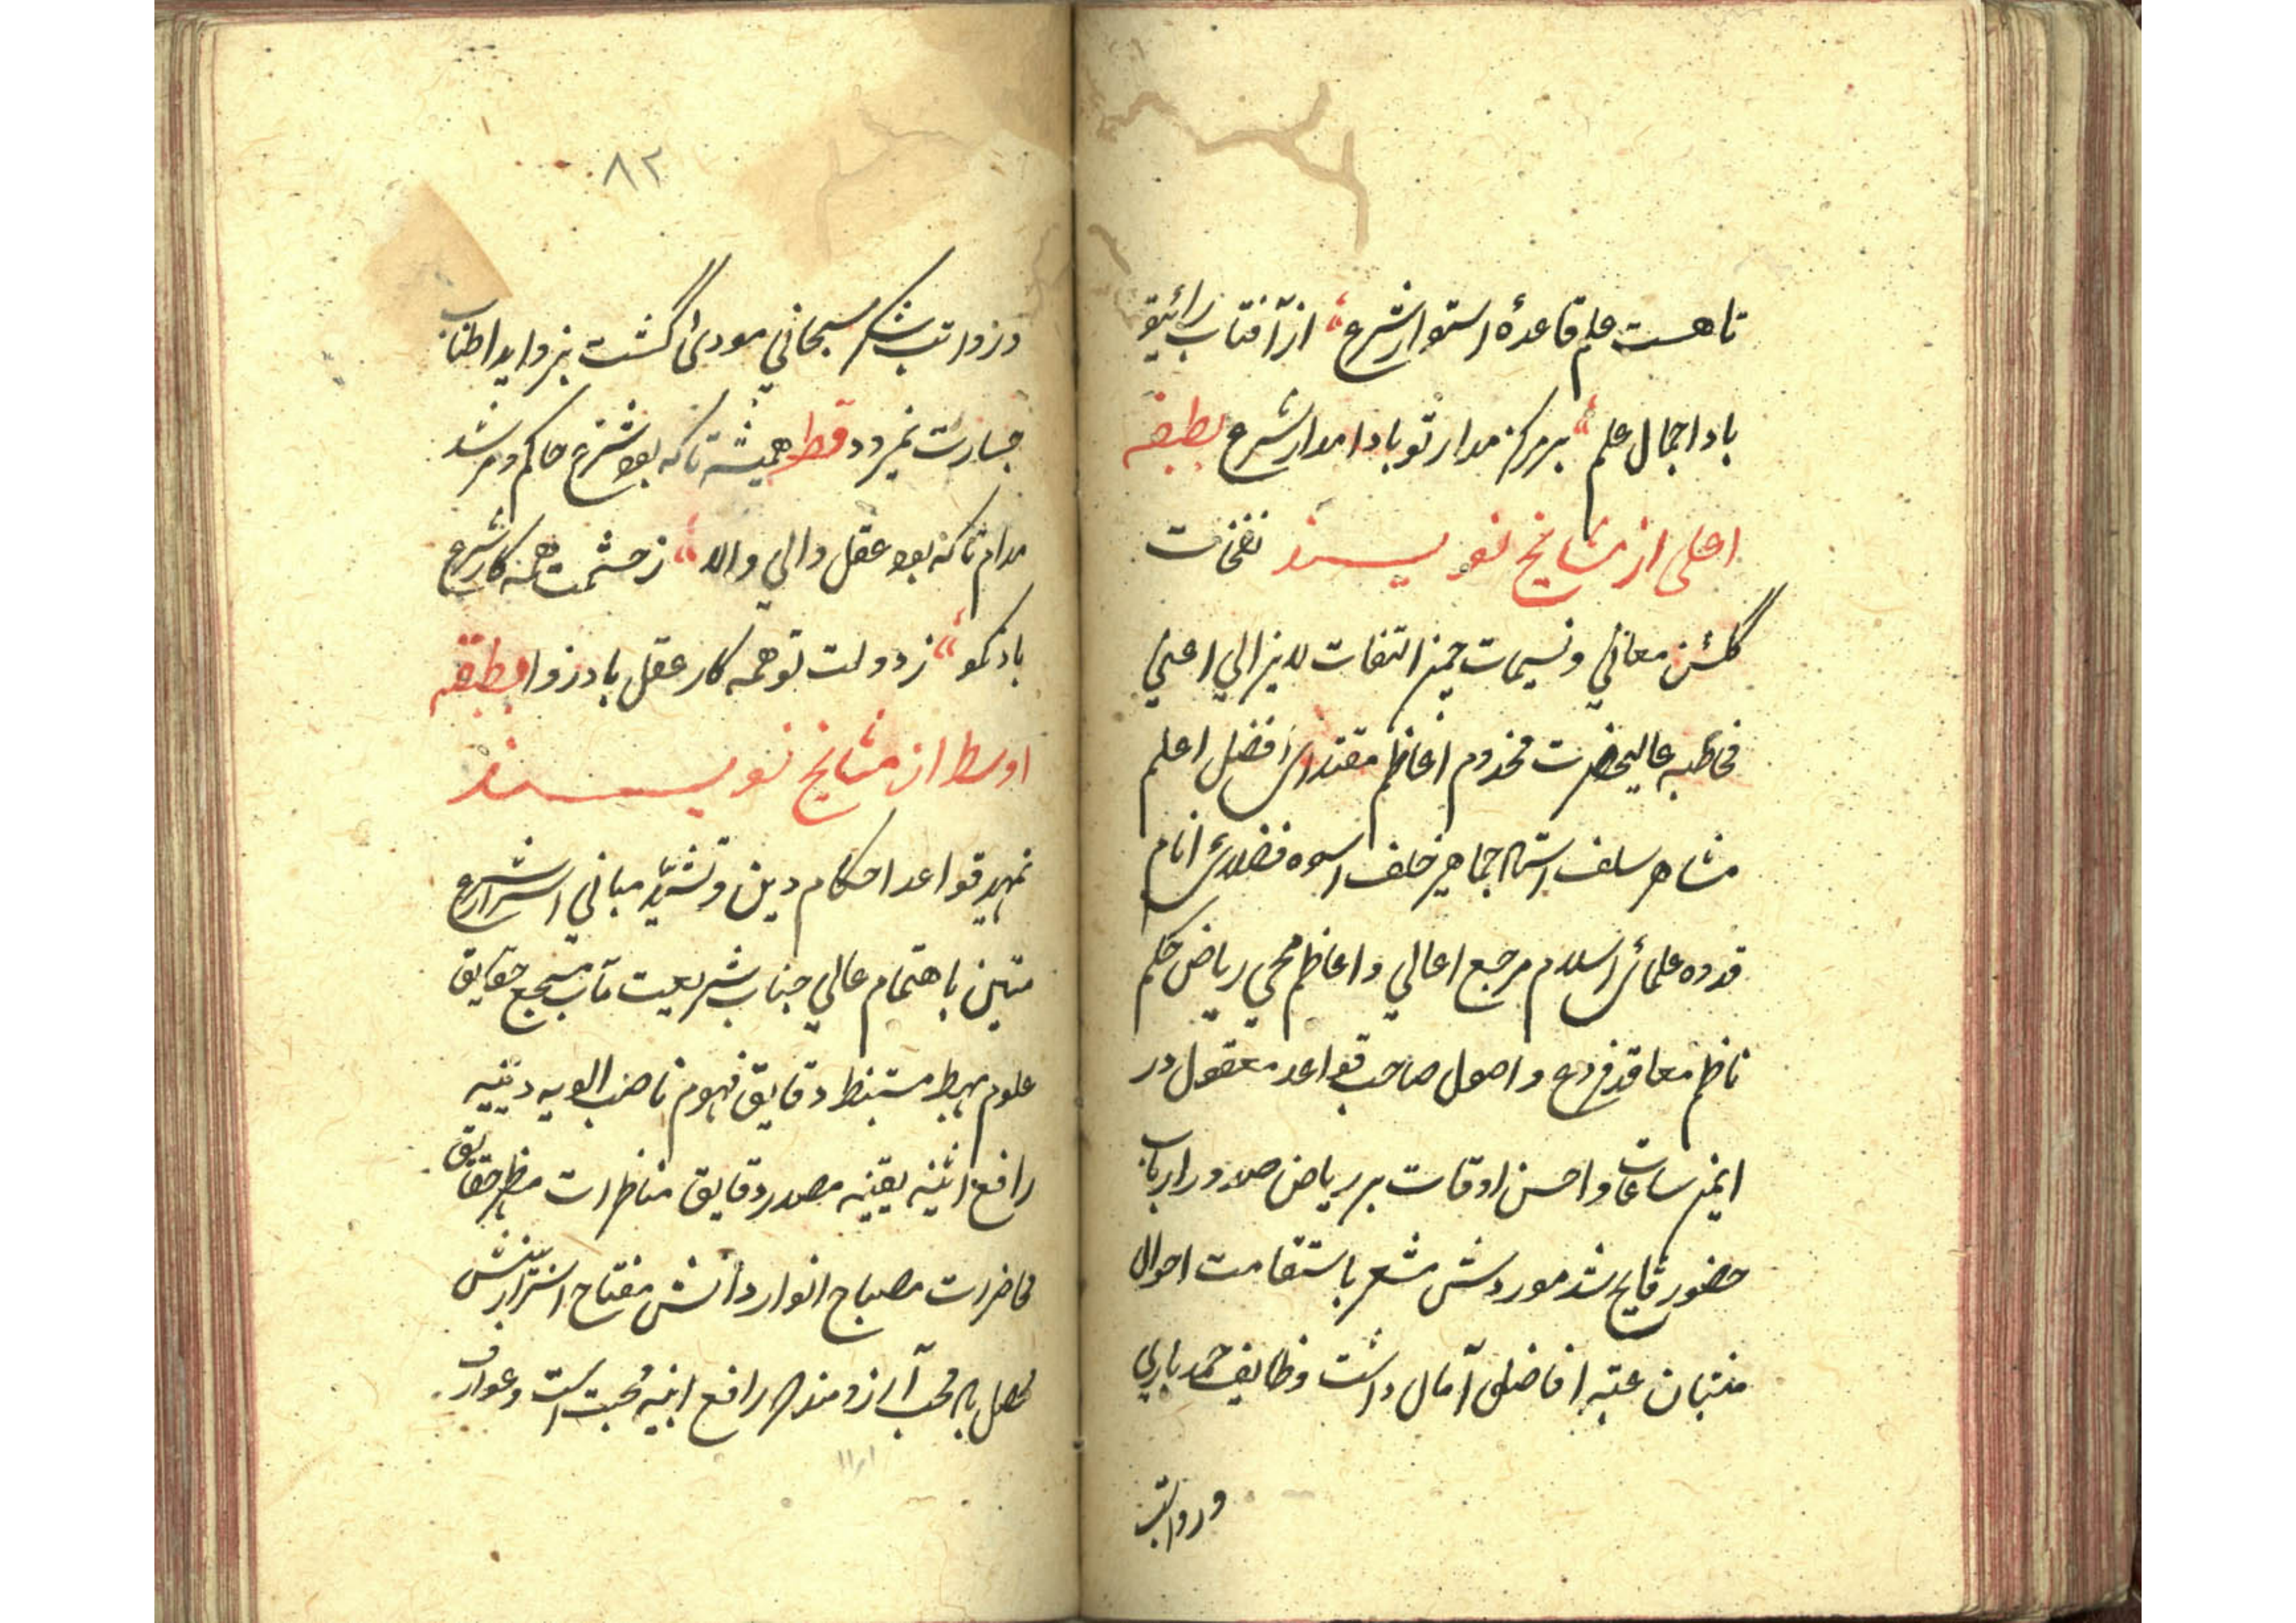 تا هست علم قاعدهٔ استوار شرع از آفتاب رائیق
باد اجمال علم بر مرکز مدار تو بادا مدار شرع بطبقه
اعلی از مشایخ نویسند نفخات
گلشن معانی و نسیمات چمن التفات لایزالی اعنی
مخاطبه عالیحضرت مخدوم اعاظم مقتدای افضل اعلم
مشاهر سلف استاد جماهیر خلف اسوه فضلای انام
قدوه علمائ اسلام مرجع اعالی و اعاظم محی ریاض حکم
ناظم معاقد فروع و اصول صاحب قواعد معقول در
ایمن ساعات و احسن اوقات بر ریاض صدور ارباب
حضور فایح شد موردش مشعر باستقامت احوال
منتبان عتبه افاضلی آمال داشت وظایف حمد باری
و رواتب
٨٢
و رواتب شکر سبحانی مودیٰ گشت بزواید اطناب
جسارت نمیرود قط همیشه تا که بود شرع حاکم و مرشد
مدام تا که بود عقل والی والا ز حشمت همه کار شرع
باد نکو ز دولت تو همه کار عقل باد روا بطبقه
اوسط از مشایخ نویسند
تمهید قواعد احکام دین و تشیّید مبانی اسرار شرع
متین باهتمام عالی جناب شریعت مآب مجمع حقایق
علوم مهبط مستنبط دقایق فهوم ناصب الویه دینیه
رافع ابنیه یقینیه مصدر دقایق مناظرات مظهر حقایق
محاضرات مصباح انوار دانش مفتاح اسرار بینش
محصل باد محب آرزومند رافع ابنیه محبت است و عوارف